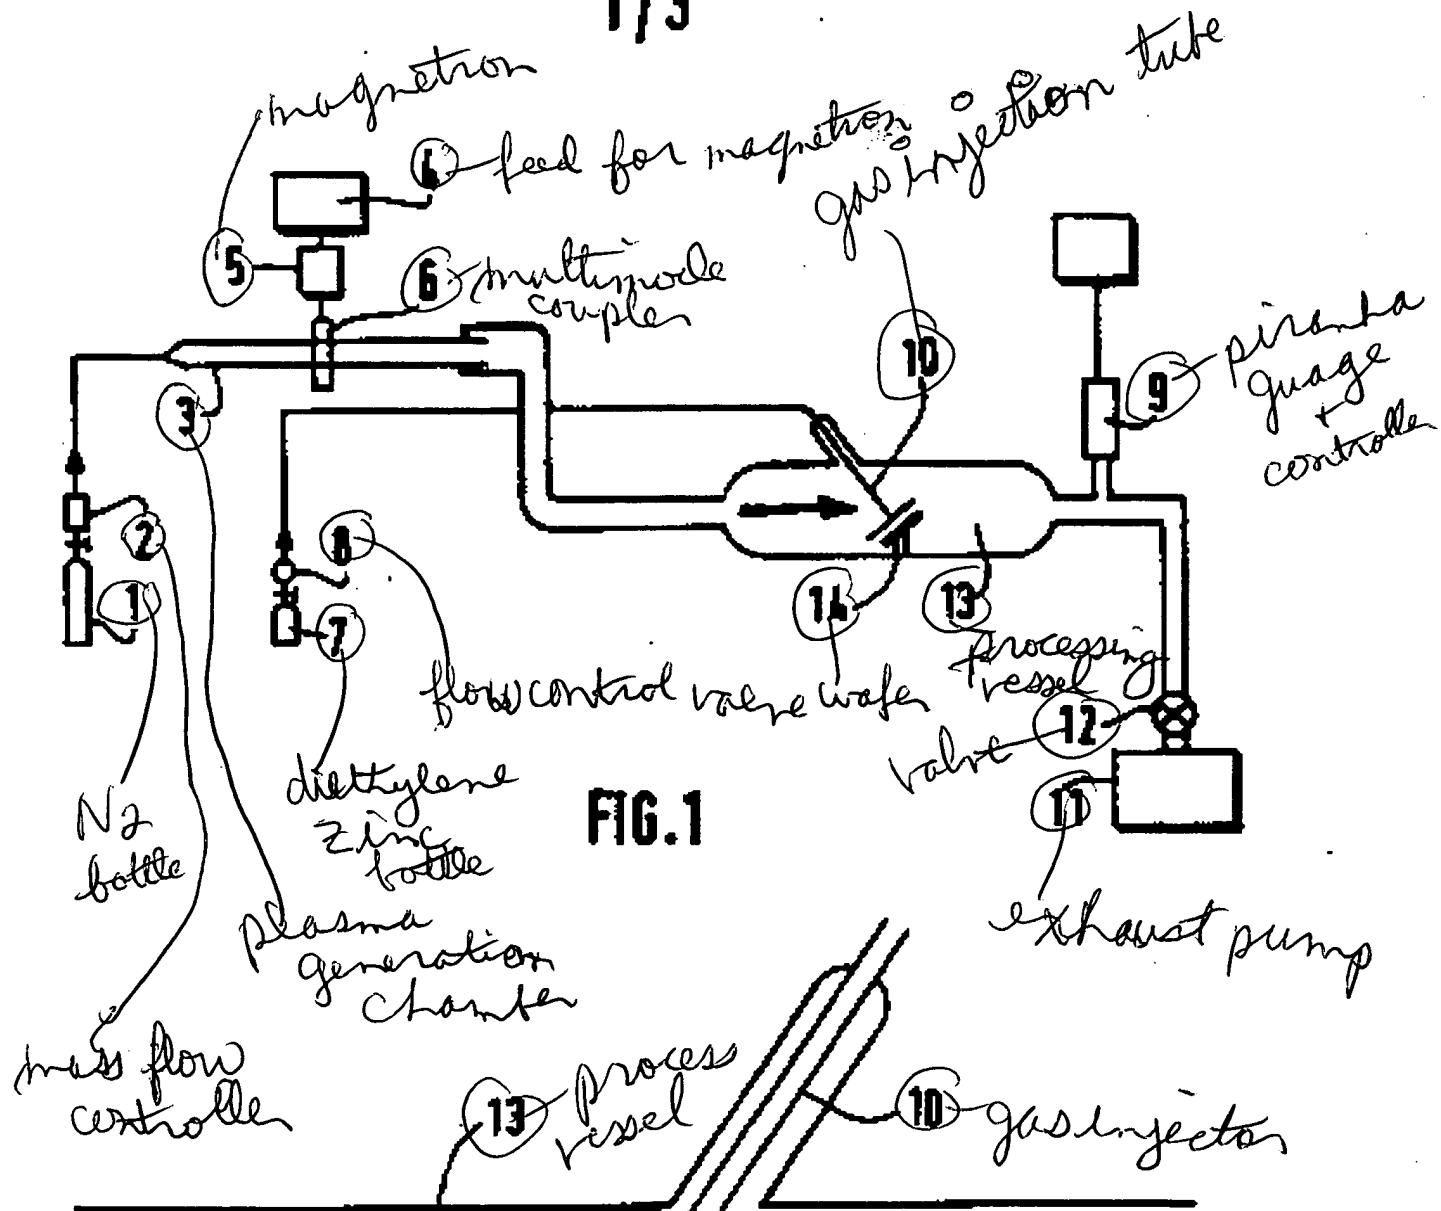 1/3
magnetron
4 feed for magnetron
gas injection tube
5
6 multimode
coupler
10
9 piranha
guage
+
controller
3
2
8
1
7
14
13
processing
vessel
flow control valve wafer
valve 12
11
N2
bottle
diethylene
zinc
bottle
FIG.1
exhaust pump
plasma
generation
chamber
mass flow
controller
13 process
vessel
10 gas injector